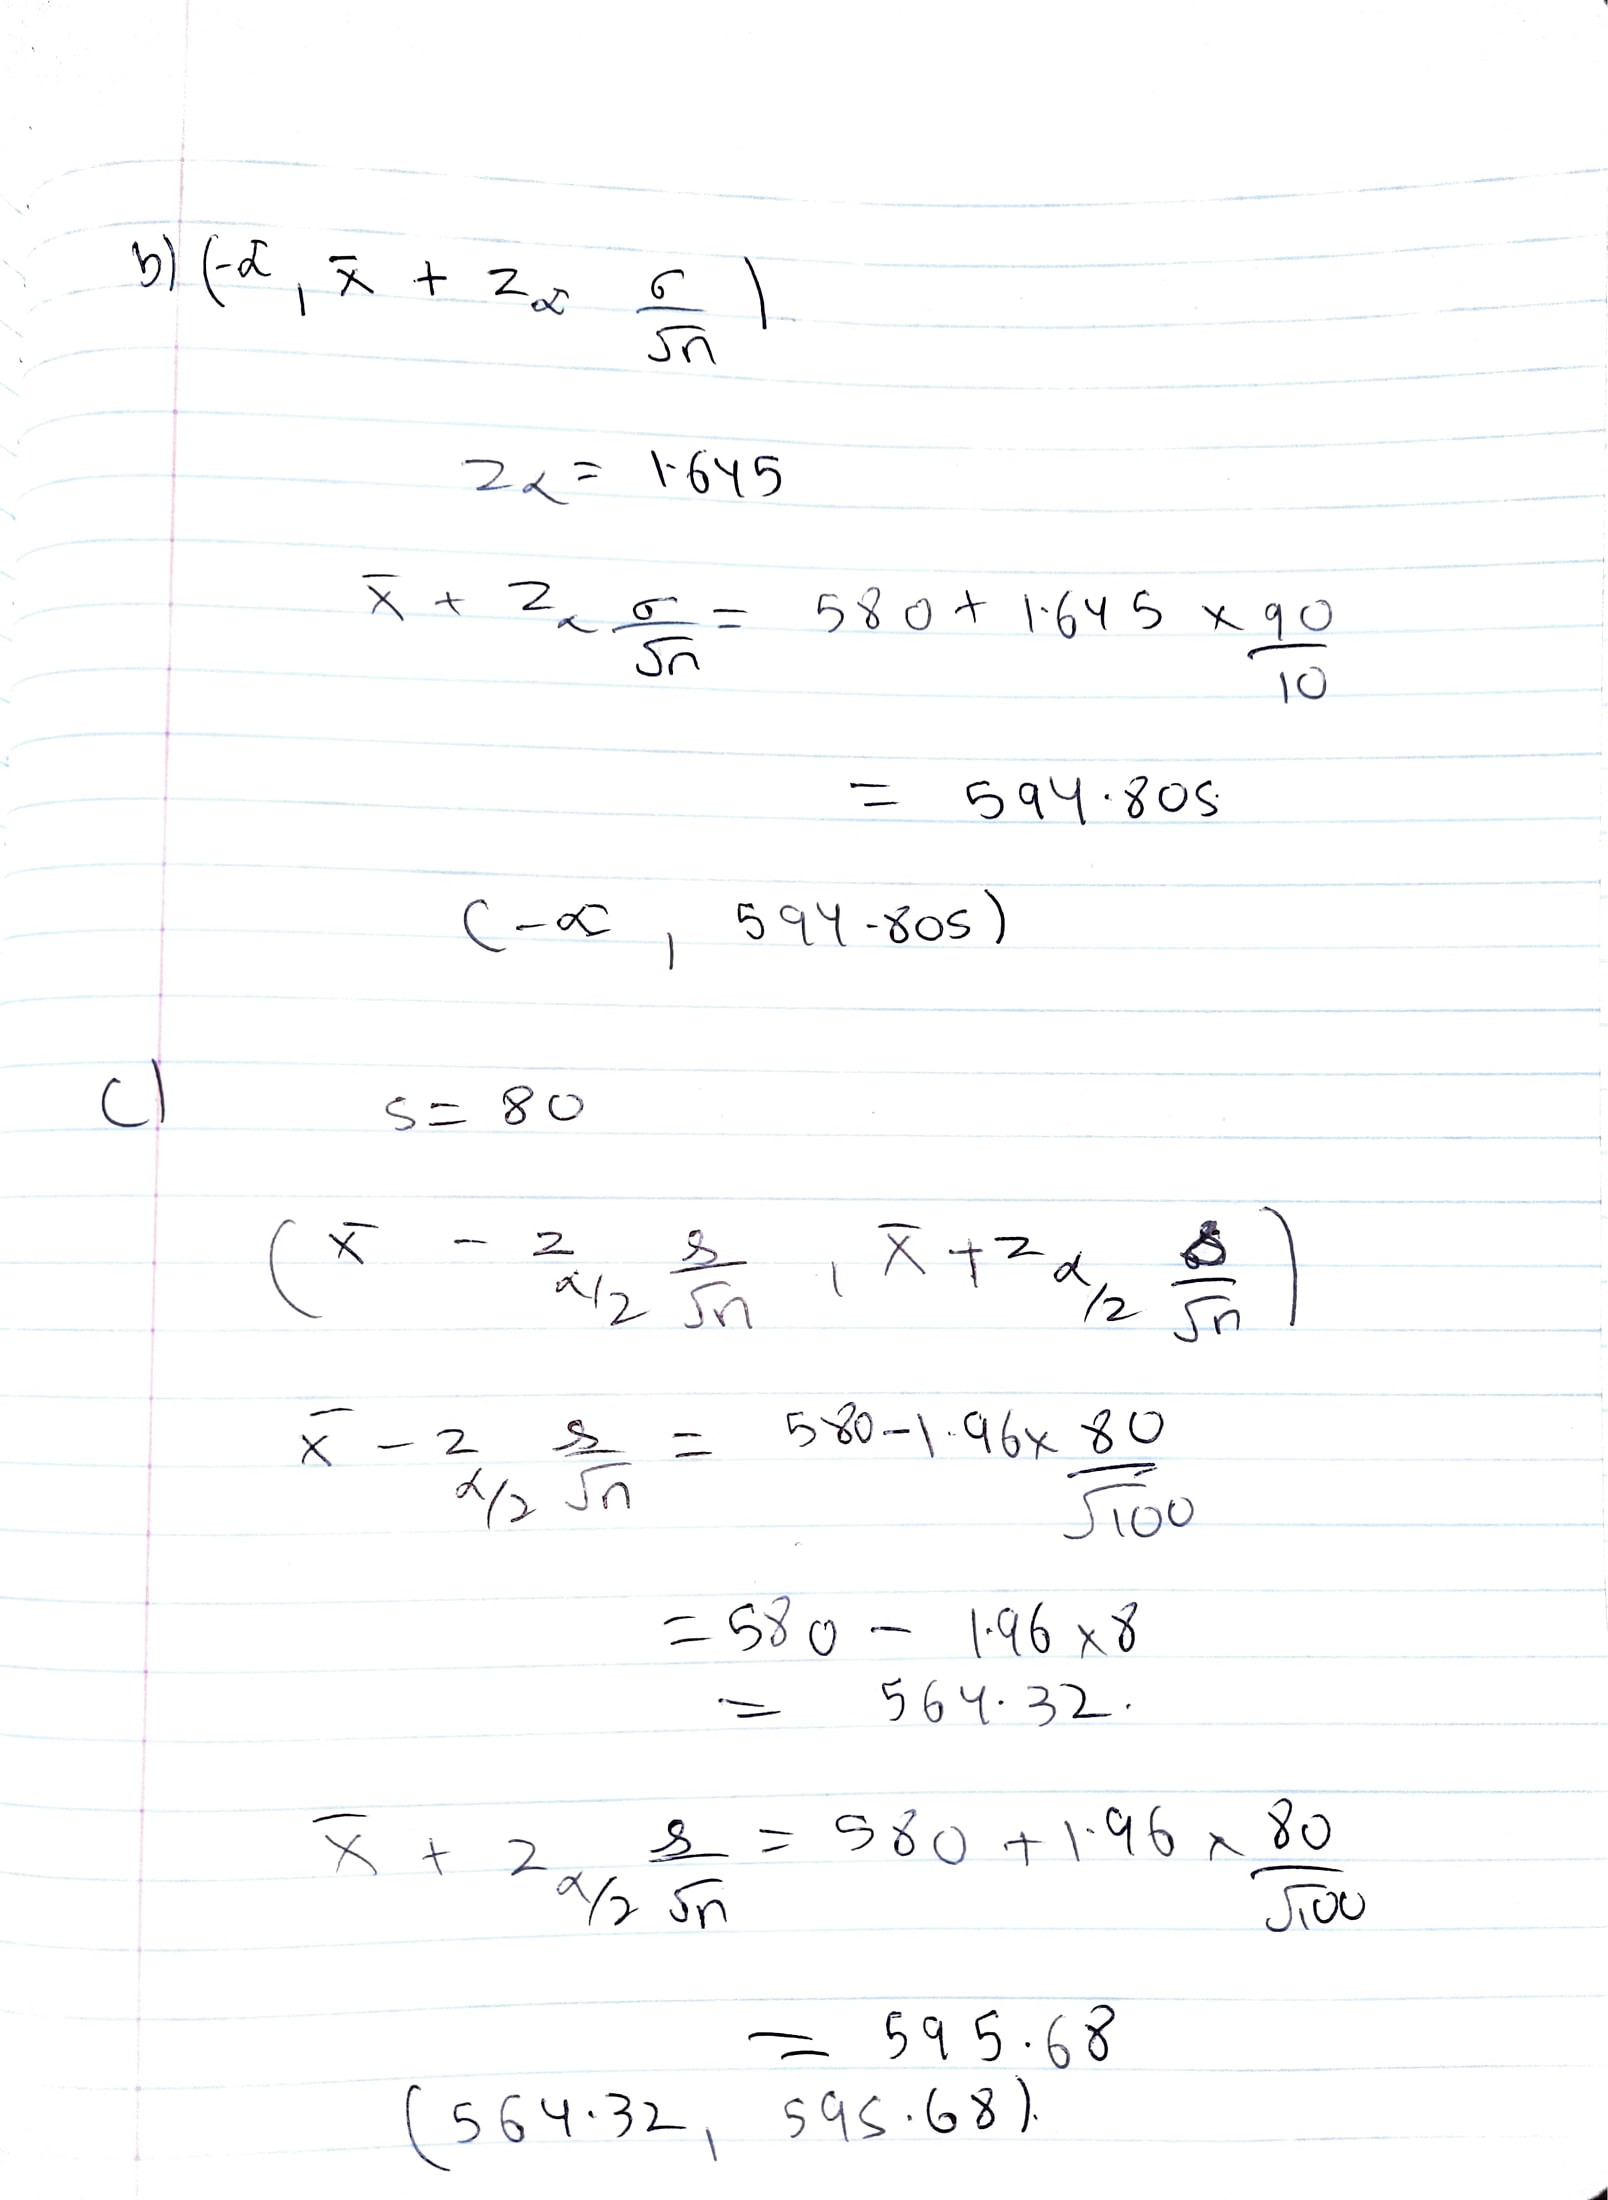 b) (-∝, x̄ + z∝ σ/√n)
zα = 1.645
x̄ + zα σ/√n = 580 + 1.645 × 90/10
= 594.805
(-∝, 594.805)
c) s = 80
(x̄ - zα/2 s/√n, x̄ + zα/2 s/√n)
x̄ - zα/2 s/√n = 580 - 1.96 × 80/√100
= 580 - 1.96 × 8
= 564.32.
x̄ + zα/2 s/√n = 580 + 1.96 × 80/√100
= 595.68
(564.32, 595.68).